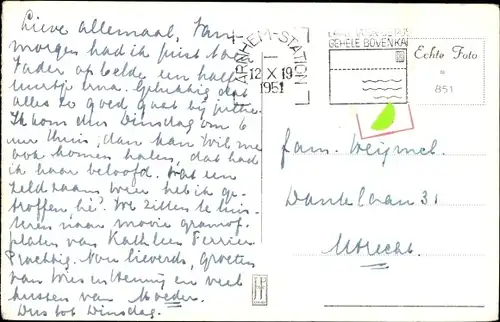 Lieve allemaal, Van-
morgen had ik juist toen
Vader opbelde een half
uurtje Gelukkig dat
alles zo goed gaat bij jullie.
Ik kom dus Dinsdag om 6
uur thuis, dan kan Wil me
ook komen halen, dat had
ik haar beloofd. Wat een
zeldzaam weer heb ik ge-
troffen, hè? We zitten te luis-
teren naar mooie gramof.
platen van Kathleen Ferrier
Prachtig. Nou lieverds, groeten
van Wies en Henny en veel
kussen van Moeder.
Dus tot Dinsdag.
ARNHEM-STATION
12 X 19
1951
GEHELE BOVENKA
Echte Foto
851
fam. Weijmel.
Dantelaan 31
Utrecht.